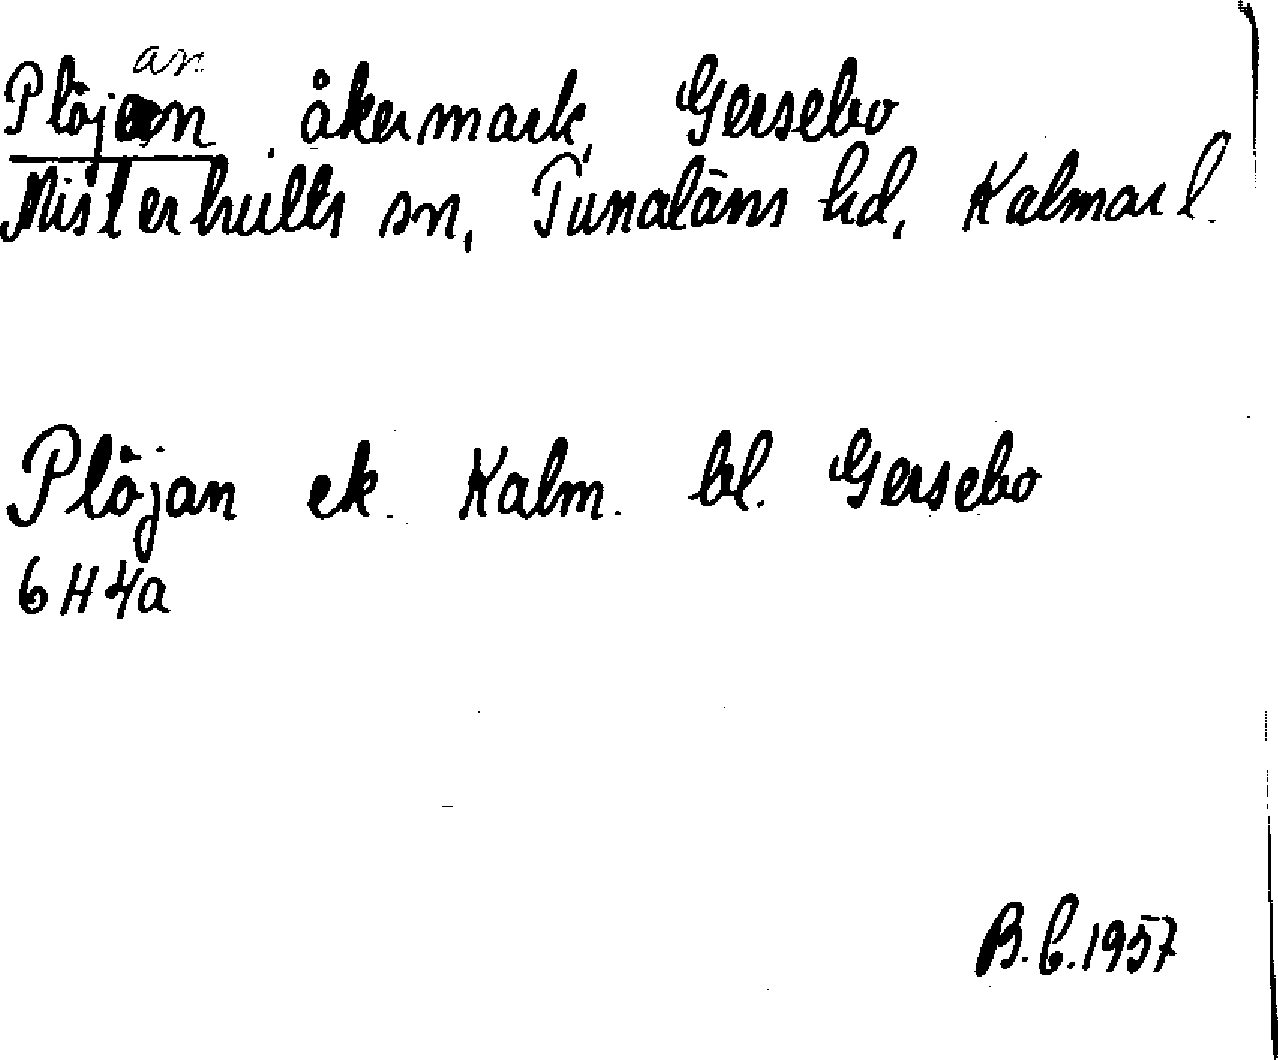 an
Plöjan, åkermark, Gersebo
Misterhults sn, Tunaläns hd, Kalmar l.
Plöjan ek. Kalm. bl. Gersebo
6 H 4a
B. C. 1957